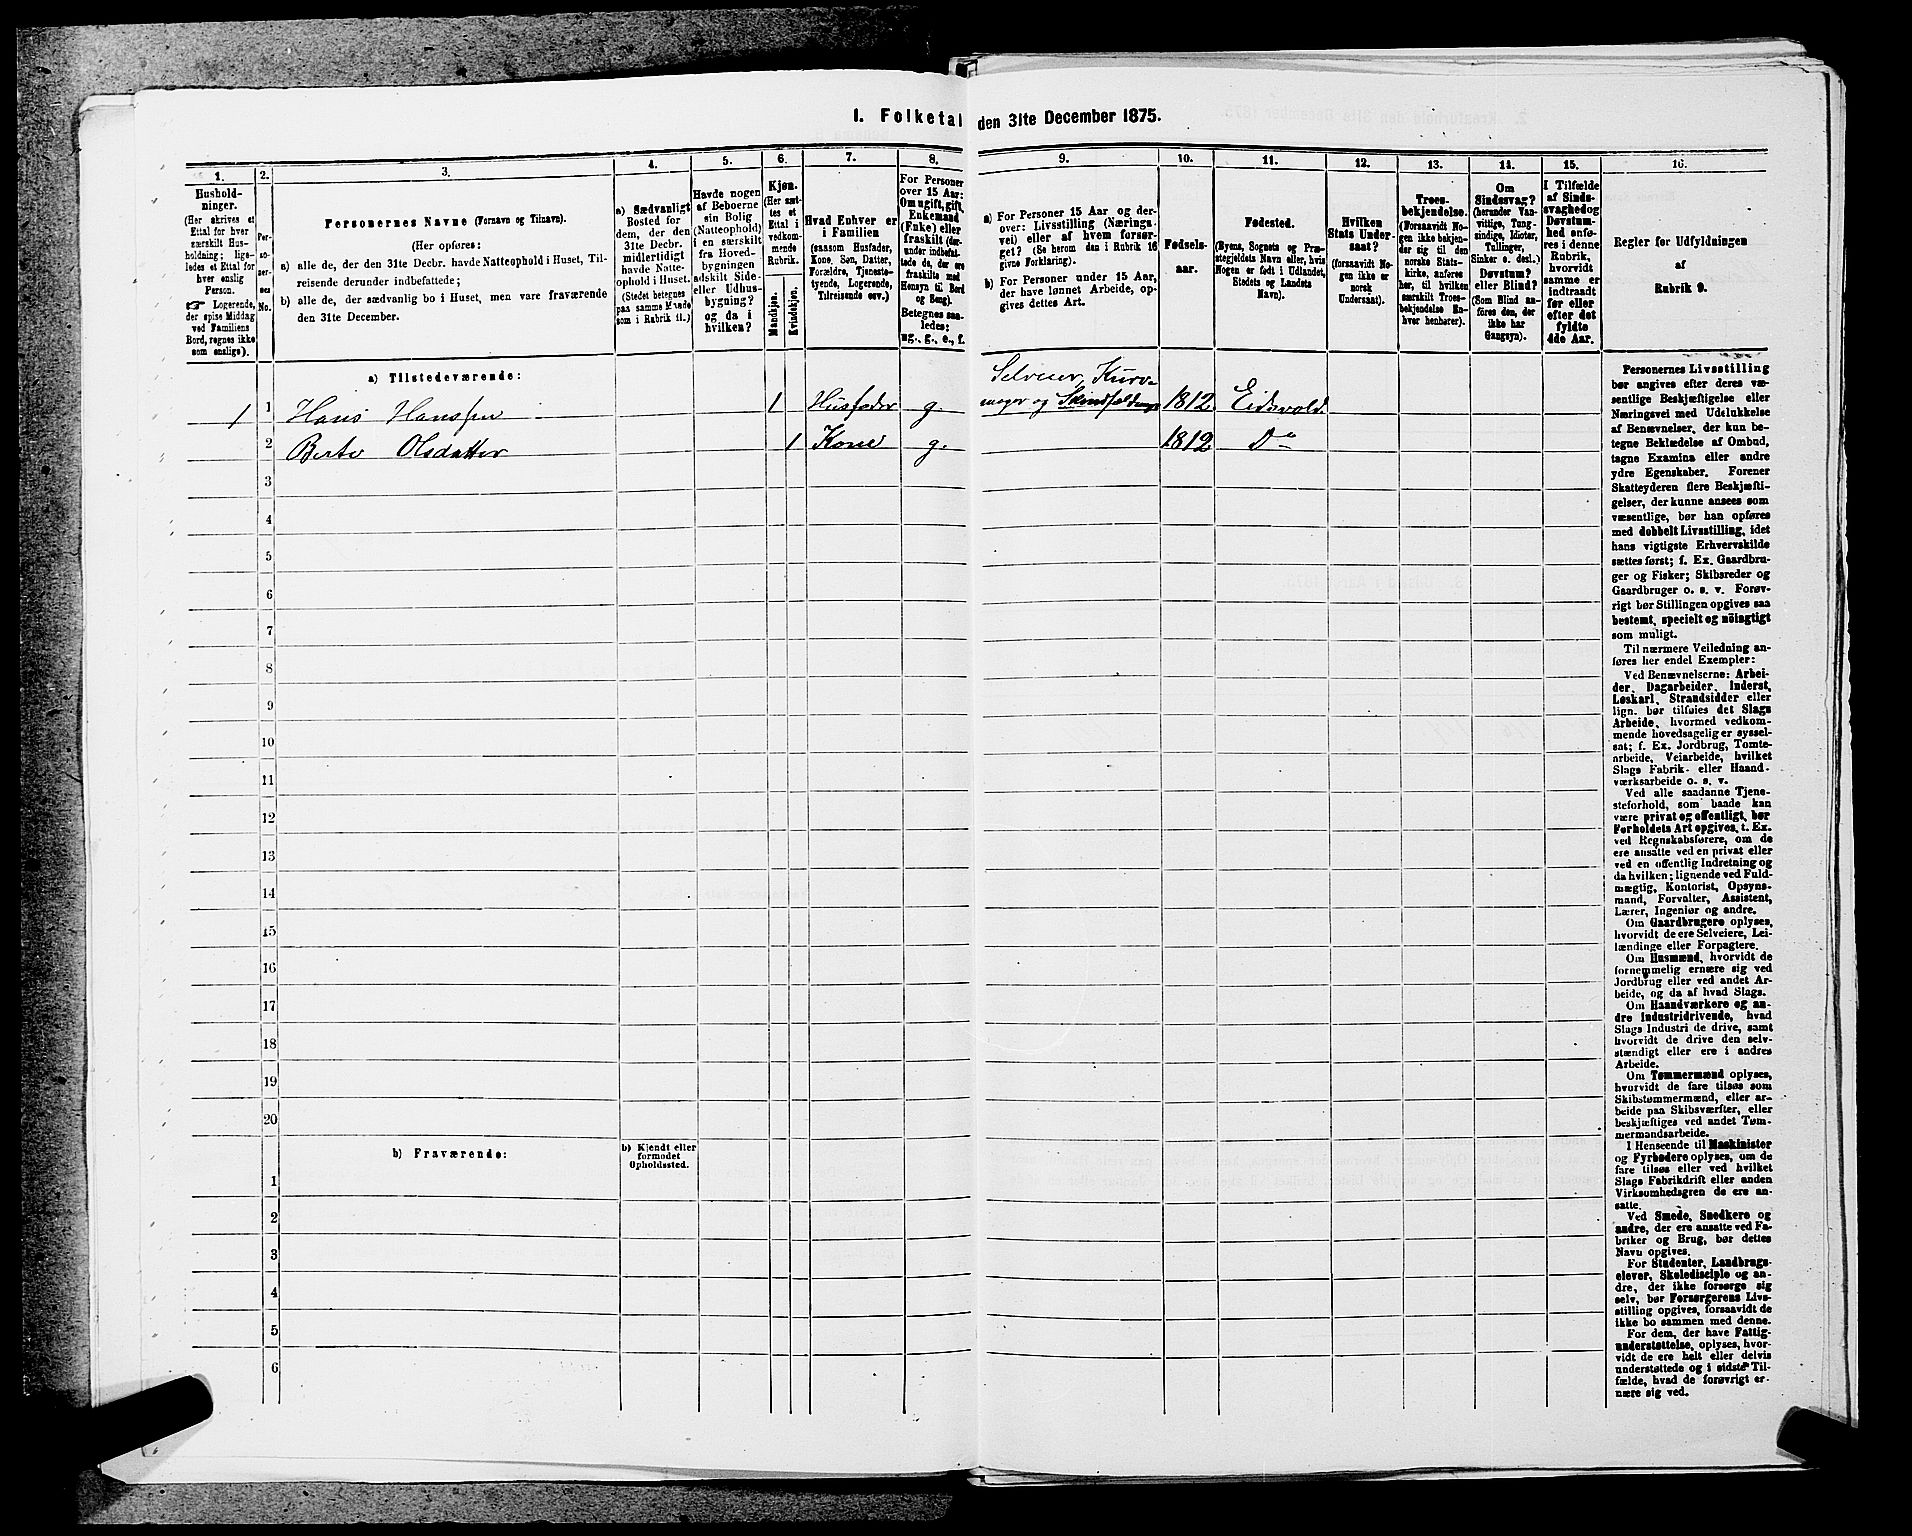 I. Folketal den 31te December 1875.
1. 2. 3. 4. 5. 6. 7. 8. 9. 10. 11. 12. 13. 14. 15. 16.
Hushold-
ninger.
(Her skrives et
Ettal for hver
særskilt Hus-
holdning; lige-
ledes et Ettal for
hver enslig
Person.
☞ Logerende,
der spise Middag
ved Familiens
Bord, regnes ikke
som enslige).
Per-
so-
ner-
nes
No.
Personernes Navne (Fornavn og Tilnavn).
(Her opføres:
a) alle de, der den 31te Decbr. havde Natteophold i Huset, Til-
reisende derunder indbefattede;
b) alle de, der sædvanlig bo i Huset, men vare fraværende
den 31te December.
a) Sædvanligt
Bosted for
dem, der den
31te Decbr.
midlertidigt
havde Natte-
ophold i Huset.
(Stedet betegnes
paa samme Maade
som i Rubrik 11.)
Havde nogen
af Beboerne
sin Bolig
(Natteophold)
i en særskilt
fra Hoved-
bygningen
adskilt Side-
eller Udhus-
bygning?
og da i
hvilken?
Kjøn.
(Her sæt-
tes et
Ettal i
vedkom-
mende
Rubrik.
Mandkjøn.
Kvindekjøn.
Hvad Enhver er
i Familien
(saasom Husfader,
Kone, Søn, Datter,
Forældre, Tjeneste-
tyende, Logerende,
Tilreisende osv.)
For Personer
over 15 Aar:
Om ugift, gift,
Enkemand
(Enke) eller
fraskilt (der-
under indbefat-
tede de, der ere
fraskilte med
Hensyn til Bord
og Seng).
Betegnes saa-
ledes:
ug., g., e., f.
a) For Personer 15 Aar og der-
over: Livsstilling (Nærings-
vei) eller af hvem forsør-
get? (Se herom den i Rubrik 16
givne Forklaring).
b) For Personer under 15 Aar,
der have lønnet Arbeide, op-
gives dettes Art.
Fødsels-
aar.
Fødested.
(Byens, Sognets og Præ-
stegjeldets Navn eller, hvis
Nogen er født i Udlandet,
Stedets og Landets
Navn).
Hvilken
Stats Under-
saat?
(forsaavidt No-
gen ikke er
norsk
Undersaat).
Troes-
bekjendelse.
(Forsaavidt No-
gen ikke bekjen-
der sig til den
norske Stats-
kirke, anføres
her, til hvilken
særskilt Troes-
bekjendelse En-
hver henhører).
Om
Sindssvag?
(herunder Van-
vittige, Tung-
sindige, Idioter,
Tullinger,
Sinker o. desl.).
Døvstum?
eller Blind?
(Som Blind an-
føres den, der
ikke har
Gangsyn).
I Tilfælde
af Sinds-
svaghed og
Døvstum-
hed anfø-
res i denne
Rubrik,
hvorvidt
samme er
indtraadt
før eller
efter det
fyldte
4de Aar.
Regler for Udfyldningen
af
Rubrik 9.
a) Tilstedeværende:
Selveier, Kurv-
1 1 Hans Hanssen 1 Husfader g. mager og 1812 Eidsvold
2 Berte Olsdatter 1 Kone g. 1812 Do
3
4
5
6
7
8
9
10
11
12
13
14
15
16
17
18
19
20
b) Fraværende:
b) Kjendt eller
formodet
Opholdssted.
1
2
3
4
5
6
Personernes Livsstilling
bør angives efter deres væ-
sentlige Beskjæftigelse eller
Næringsvei med Udelukkelse
af Benævnelser, der kun be-
tegne Beklædelse af Ombud,
tagne Examina eller andre
ydre Egenskaber. Forener
Skatteyderen flere Beskjæfti-
gelser, der kunne ansees som
væsentlige, bør han opføres
med dobbelt Livsstilling, idet
hans vigtigste Erhvervskilde
sættes først; f. Ex. Gaardbru-
ger og Fisker; Skibsreder og
Gaardbruger o. s. v. Forøv-
rigt bør Stillingen opgives saa
bestemt, specielt og nöiagtigt
som muligt.
Til nærmere Veiledning an-
føres her endel Exempler:
Ved Benævnelserne: Arbei-
der, Dagarbeider, Inderst,
Løskarl, Strandsidder eller
lign. bør tilføies det Slags
Arbeide, hvormed vedkom-
mende hovedsagelig er syssel-
sat; f. Ex. Jordbrug, Tomte-
arbeide, Veiarbeide, hvilket
Slags Fabrik- eller Haand-
værksarbeide o. s. v.
Ved alle saadanne Tjene-
steforhold, som baade kan
være privat og offentligt, bør
Forholdets Art opgives, t. Ex.
ved Regnskabsførere, om de
ere ansatte ved en privat eller
ved en offentlig Indretning og
da hvilken; lignende ved Fuld-
mægtig, Kontorist, Opsyns-
mand, Forvalter, Assistent,
Lærer, Ingeniør og andre.
Om Gaardbrugere oplyses,
hvorvidt de ere Selveiere, Lei-
lændinge eller Forpagtere.
Om Husmænd, hvorvidt de
fornemmelig ernære sig ved
Jordbrug eller ved andet Ar-
beide, og da af hvad Slags.
Om Haandværkere og an-
dre industridrivende, hvad
Slags Industri de drive, samt
hvorvidt de drive den selv-
stændigt eller ere i andres
Arbeide.
Om Tømmermænd oplyses,
hvorvidt de fare tilsøs som
Skibstømmermænd, eller ar-
beide paa Skibsværfter, eller
beskjæftiges ved andet Tøm-
mermandsarbeide.
I Henseende til Maskinister
og Fyrbødere oplyses, om de
fare tilsøs eller ved hvilket
Slags Fabrikdrift eller anden
Virksomhedsgren de ere an-
satte.
Ved Smede, Snedkere og
andre, der ere ansatte ved Fa-
briker og Brug, bør dettes
Navn opgives.
For Studenter, Landbrugs-
elever, Skoledisciple og an-
dre, der ikke forsørge sig
selv, bør Forsørgerens Livs-
stilling opgives, forsaavidt de
ikke bo sammen med denne.
For dem, der have Fattig-
understøttelse, oplyses, hvor-
vidt de ere helt eller delvis
understøttede og i sidste Til-
fælde, hvad de forøvrigt er-
nære sig ved.